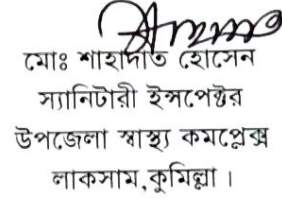 মোঃ শাহাদাত হোসেন
স্যানিটারী ইন্সপেক্টর
উপজেলা স্বাস্থ্য কমপ্লেক্স
লাকসাম,কুমিল্লা ।